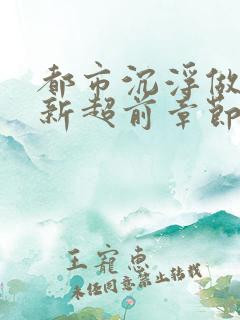 都市沉浮做
新超前章节
王宠惠
未经同意禁止转载